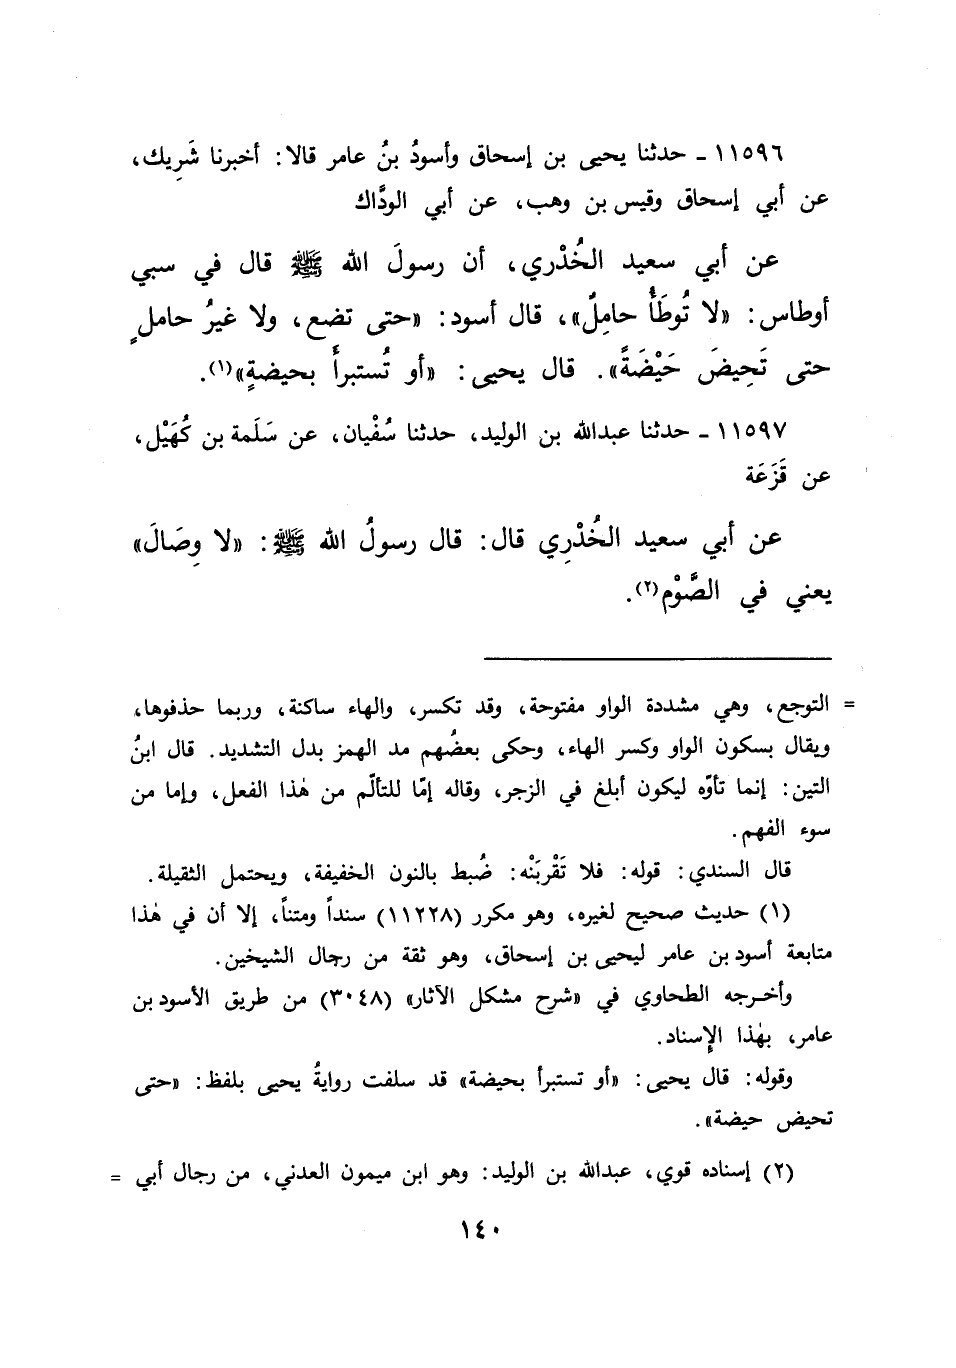 ١١٥٩٦ ـ حدثنا يحيى بن إسحاق وأسودُ بنُ عامر قالا: أخبرنا شَرِيك،
عن أبي إسحاق وقيس بن وهب، عن أبي الودَّاك
عن أبي سعيد الخُدْري، أن رسولَ الله ﷺ قال في سبي
أوطاس: «لا تُوطَأُ حامِلٌ»، قال أسود: «حتى تضع، ولا غيرُ حاملٍ
حتى تَحِيضَ حَيْضَةً». قال يحيى: «أو تُستبرأَ بحيضةٍ»(١).
١١٥٩٧ ـ حدثنا عبدالله بن الوليد، حدثنا سُفْيان، عن سَلَمة بن كُهَيْل،
عن قَزَعَة
عن أبي سعيد الخُدْرِي قال: قال رسولُ الله ﷺ: «لا وِصَالَ»
يعني في الصَّوْم(٢).
= التوجع، وهي مشددة الواو مفتوحة، وقد تكسر، والهاء ساكنة، وربما حذفوها،
ويقال بسكون الواو وكسر الهاء، وحكى بعضُهم مد الهمز بدل التشديد. قال ابنُ
التين: إنما تأوّه ليكون أبلغ في الزجر، وقاله إمّا للتألّم من هٰذا الفعل، وإما من
سوء الفهم.
قال السندي: قوله: فلا تَقْربَنْه: ضُبط بالنون الخفيفة، ويحتمل الثقيلة.
(١) حديث صحيح لغيره، وهو مكرر (١١٢٢٨) سنداً ومتناً، إلا أن في هٰذا
متابعة أسود بن عامر ليحيى بن إسحاق، وهو ثقة من رجال الشيخين.
وأخرجه الطحاوي في «شرح مشكل الآثار» (٣٠٤٨) من طريق الأسود بن
عامر، بهٰذا الإِسناد.
وقوله: قال يحيى: «أو تستبرأ بحيضة» قد سلفت روايةُ يحيى بلفظ: «حتى
تحيض حيضة».
(٢) إسناده قوي، عبدالله بن الوليد: وهو ابن ميمون العدني، من رجال أبي =
١٤٠